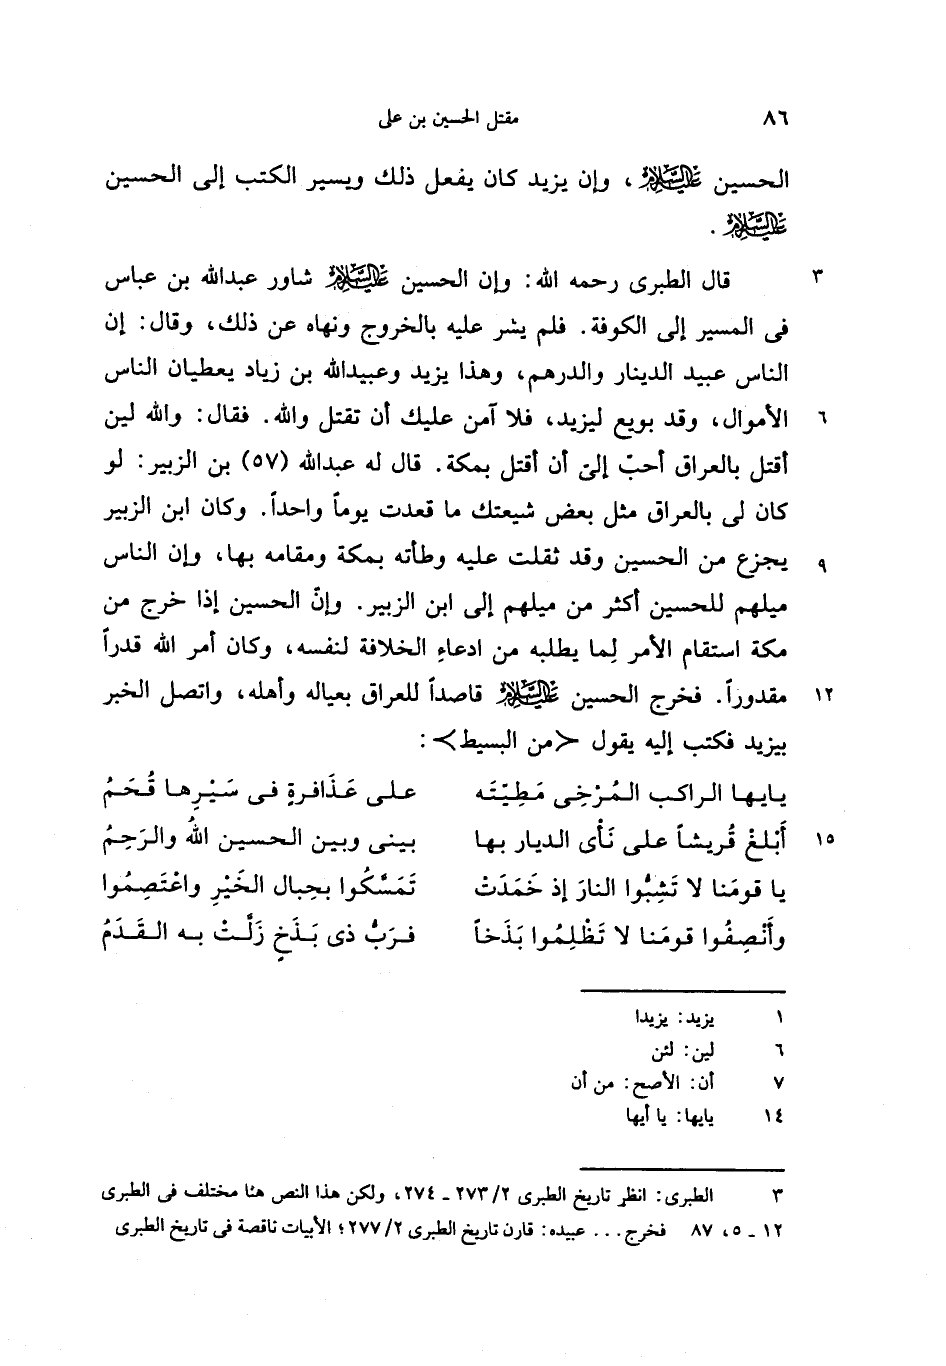 ٨٦ مقتل الحسين بن على
الحسين عليه السلام ، وإن يزيد كان يفعل ذلك ويسير الكتب إلى الحسين
عليه السلام .
٣ قال الطبرى رحمه الله: وإن الحسين عليه السلام شاور عبدالله بن عباس
فى المسير إلى الكوفة. فلم يشر عليه بالخروج ونهاه عن ذلك، وقال: إن
الناس عبيد الدينار والدرهم، وهذا يزيد وعبيدالله بن زياد يعطيان الناس
٦ الأموال، وقد بويع ليزيد، فلا آمن عليك أن تقتل والله. فقال: والله لين
أقتل بالعراق أحبّ إلىّ أن أقتل بمكة. قال له عبدالله (٥٧) بن الزبير: لو
كان لى بالعراق مثل بعض شيعتك ما قعدت يوماً واحداً. وكان ابن الزبير
٩ يجزع من الحسين وقد ثقلت عليه وطأته بمكة ومقامه بها، وإن الناس
ميلهم للحسين أكثر من ميلهم إلى ابن الزبير. وإنّ الحسين إذا خرج من
مكة استقام الأمر لِما يطلبه من ادعاءِ الخلافة لنفسه، وكان أمر الله قدراً
١٢ مقدوراً. فخرج الحسين عليه السلام قاصداً للعراق بعياله وأهله، واتصل الخبر
بيزيد فكتب إليه يقول <من البسيط>:
يايها الراكب المُرْخِى مَطِيّتَه على عَذَافرةٍ فى سَيْرِها قُحَمُ
١٥ أَبلغْ قُريشاً على نَأْى الديار بها بينى وبين الحسين اللهُ والرَحِمُ
يا قومَنا لا تَشِبُّوا النارَ إذ خَمَدَتْ تَمَسَّكُوا بحِبال الخَيْرِ واعْتَصِمُوا
وأَنْصِفُوا قومَنا لا تَظْلِمُوا بَذَخاً فرَبُّ ذى بَذَخٍ زَلَّتْ به القَدَمُ
١ يزيد: يزيدا
٦ لين: لئن
٧ أن: الأصح: من أن
١٤ يايها: يا أيها
٣ الطبرى: انظر تاريخ الطبرى ٢/ ٢٧٣ ـ ٢٧٤، ولكن هذا النص هنا مختلف فى الطبرى
١٢ ـ ٥، ٨٧ فخرج... عبيده: قارن تاريخ الطبرى ٢/ ٢٧٧؛ الأبيات ناقصة فى تاريخ الطبرى